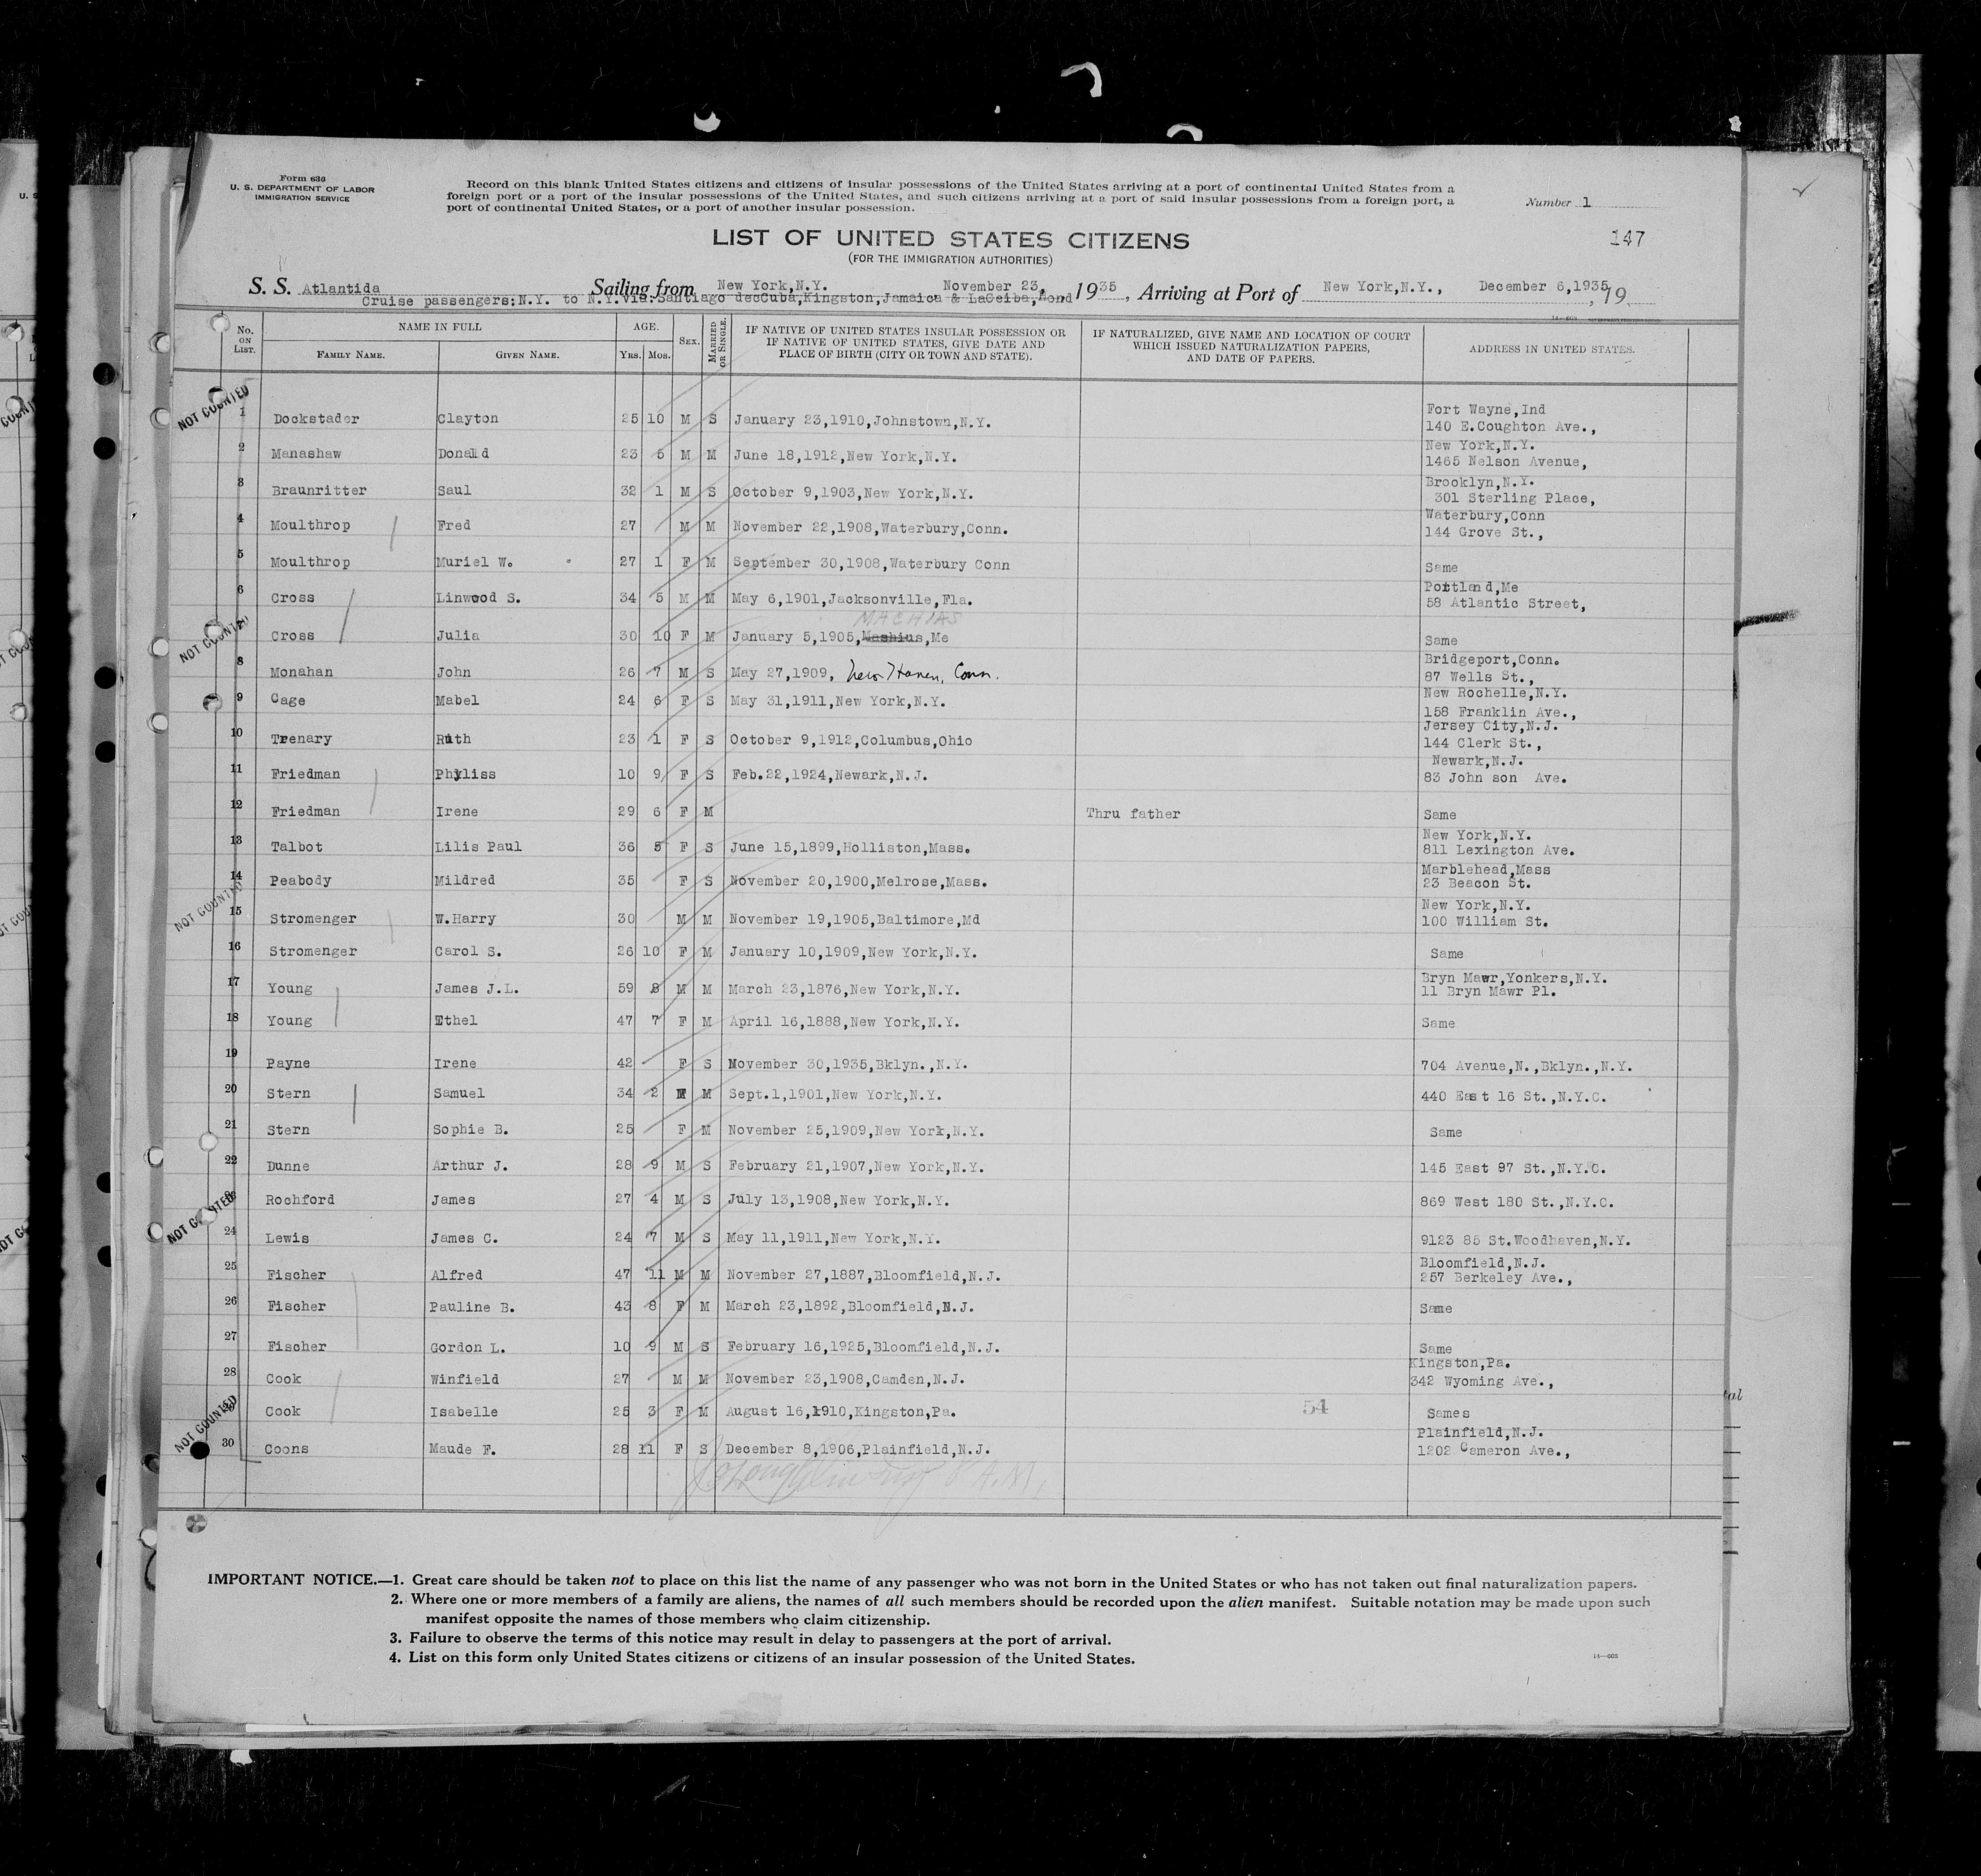 Form 630
U. S. DEPARTMENT OF LABOR
IMMIGRATION SERVICE
Record on this blank United States citizens and citizens of insular possessions of the United States arriving at a port of continental United States from a
foreign port or a port of the insular possessions of the United States, and such citizens arriving at a port of said insular possessions from a foreign port, a
port of continental United States, or a port of another insular possession.
Number 1
LIST OF UNITED STATES CITIZENS
147
(FOR THE IMMIGRATION AUTHORITIES)
S. S. Atlantida Sailing from New York,N.Y. November 23, 1935, Arriving at Port of New York,N.Y., December 6,1935, 19
Cruise passengers:N.Y. to N.Y.via:Santiago decCuba,Kingston,Jamaica & LaCeiba,Hond
No. ON LIST. NAME IN FULL AGE. SEX. MARRIED OR SINGLE. IF NATIVE OF UNITED STATES INSULAR POSSESSION OR IF NATIVE OF UNITED STATES, GIVE DATE AND PLACE OF BIRTH (CITY OR TOWN AND STATE). IF NATURALIZED, GIVE NAME AND LOCATION OF COURT WHICH ISSUED NATURALIZATION PAPERS, AND DATE OF PAPERS. ADDRESS IN UNITED STATES.
FAMILY NAME. GIVEN NAME. YRS. MOS.
NOT COUNTED
Fort Wayne,Ind
1 Dockstader Clayton 25 10 M S January 23,1910,Johnstown,N.Y. 140 E.Coughton Ave.,
New York,N.Y.
2 Manashaw Donald 23 5 M M June 18,1912,New York,N.Y. 1465 Nelson Avenue,
Brooklyn,N.Y.
3 Braunritter Saul 32 1 M S October 9,1903,New York,N.Y. 301 Sterling Place,
Waterbury,Conn
4 Moulthrop Fred 27 M M November 22,1908,Waterbury,Conn. 144 Grove St.,
5 Moulthrop Muriel W. 27 1 F M September 30,1908,Waterbury Conn Same
Portland,Me
6 Cross Linwood S. 34 5 M M May 6,1901,Jacksonville,Fla. 58 Atlantic Street,
MACHIAS
NOT COUNTED
7 Cross Julia 30 10 F M January 5,1905,Mashius,Me Same
Bridgeport,Conn.
8 Monahan John 26 7 M S May 27,1909, New Haven, Conn. 87 Wells St.,
New Rochelle,N.Y.
9 Cage Mabel 24 6 F S May 31,1911,New York,N.Y. 158 Franklin Ave.,
Jersey City,N.J.
10 Trenary Ruth 23 1 F S October 9,1912,Columbus,Ohio 144 Clerk St.,
Newark,N.J.
11 Friedman Phyliss 10 9 F S Feb.22,1924,Newark,N.J. 83 John son Ave.
12 Friedman Irene 29 6 F M Thru father Same
New York,N.Y.
13 Talbot Lilis Paul 36 5 F S June 15,1899,Holliston,Mass. 811 Lexington Ave.
Marblehead,Mass
14 Peabody Mildred 35 F S November 20,1900,Melrose,Mass. 23 Beacon St.
NOT COUNTED
New York,N.Y.
15 Stromenger W.Harry 30 M M November 19,1905,Baltimore,Md 100 William St.
16 Stromenger Carol S. 26 10 F M January 10,1909,New York,N.Y. Same
Bryn Mawr,Yonkers,N.Y.
17 Young James J.L. 59 8 M M March 23,1876,New York,N.Y. 11 Bryn Mawr Pl.
18 Young Ethel 47 7 F M April 16,1888,New York,N.Y. Same
19 Payne Irene 42 F S November 30,1935,Bklyn.,N.Y. 704 Avenue,N.,Bklyn.,N.Y.
20 Stern Samuel 34 2 M M Sept.1,1901,New York,N.Y. 440 East 16 St.,N.Y.C.
21 Stern Sophie B. 25 F M November 25,1909,New York,N.Y. Same
22 Dunne Arthur J. 28 9 M S February 21,1907,New York,N.Y. 145 East 97 St.,N.Y.C.
NOT COUNTED
23 Rochford James 27 4 M S July 13,1908,New York,N.Y. 869 West 180 St.,N.Y.C.
24 Lewis James C. 24 7 M S May 11,1911,New York,N.Y. 9123 85 St.Woodhaven,N.Y.
Bloomfield,N.J.
25 Fischer Alfred 47 11 M M November 27,1887,Bloomfield,N.J. 257 Berkeley Ave.,
26 Fischer Pauline B. 43 8 F M March 23,1892,Bloomfield,N.J. Same
27 Fischer Gordon L. 10 9 M S February 16,1925,Bloomfield,N.J. Same
Kingston,Pa.
28 Cook Winfield 27 M M November 23,1908,Camden,N.J. 342 Wyoming Ave.,
NOT COUNTED
29 Cook Isabelle 25 3 F M August 16,1910,Kingston,Pa. 54 Sames
Plainfield,N.J.
30 Coons Maude F. 28 11 F S December 8,1906,Plainfield,N.J. 1202 Cameron Ave.,
IMPORTANT NOTICE.—1. Great care should be taken not to place on this list the name of any passenger who was not born in the United States or who has not taken out final naturalization papers.
2. Where one or more members of a family are aliens, the names of all such members should be recorded upon the alien manifest. Suitable notation may be made upon such
manifest opposite the names of those members who claim citizenship.
3. Failure to observe the terms of this notice may result in delay to passengers at the port of arrival.
4. List on this form only United States citizens or citizens of an insular possession of the United States.